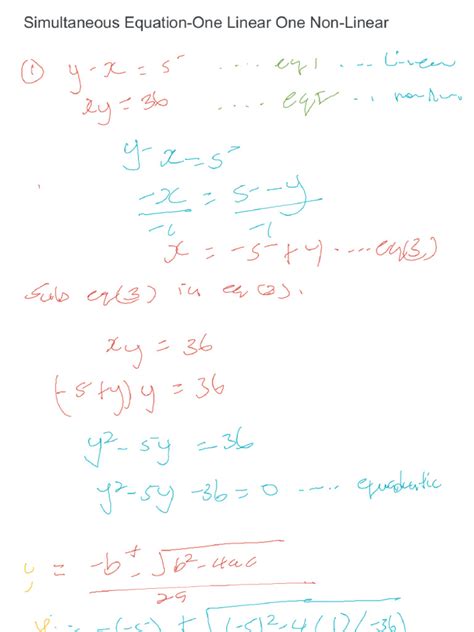 Simultaneous Equation-One Linear One Non-Linear
① y-x = 5 .... eq 1 ... Linear
xy = 36 .... eq 2 ...
y-x=5
-x/-1 = 5-y/-1
x = -5+y ....eq(3)
Sub eq(3) in eq(2).
xy = 36
(-5+y)y = 36
y²-5y = 36
y²-5y-36=0 .... quadratic
y = -b±√b²-4ac/2a
y = -(-5) ± √(-5)²-4(1)(-36)